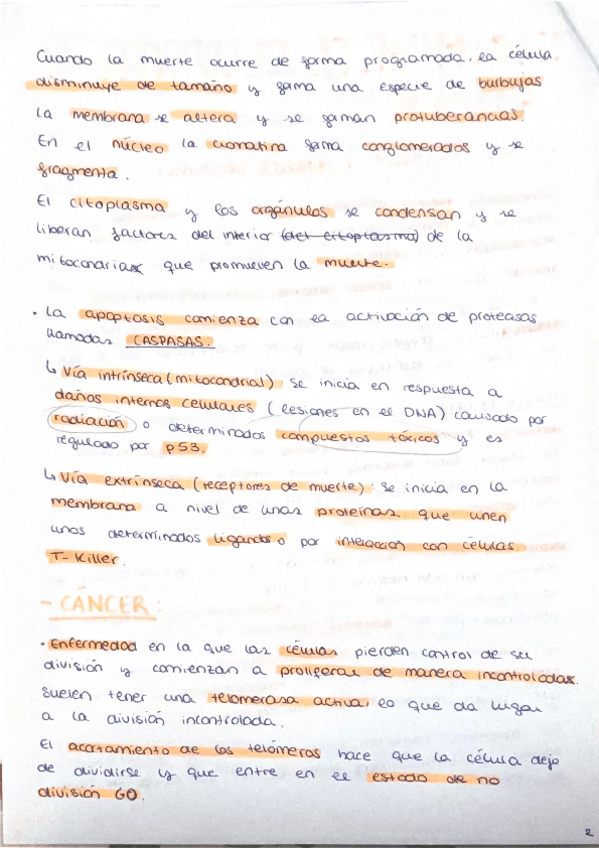 Cuando la muerte ocurre de forma programada, la célula
disminuye de tamaño y forma una especie de burbujas
La membrana se altera y se forman protuberancias.
En el núcleo la cromatina forma conglomerados y se
fragmenta.
El citoplasma y los orgánulos se condensan y se
liberan factores del interior (del citoplasma) de la
mitocondrias que promueven la muerte.
• La apoptosis comienza con la activación de proteasas
llamadas CASPASAS.
↳ Vía intrínseca (mitocondrial) Se inicia en respuesta a
daños internos celulares (lesiones en el DNA) causado por
radiación o determinados compuestos tóxicos y es
regulado por p53.
↳ Vía extrínseca (receptores de muerte): Se inicia en la
membrana a nivel de unas proteínas que unen
unos determinados ligandos o por interacción con células
T-Killer.
- CÁNCER:
• Enfermedad en la que las células pierden control de su
división y comienzan a proliferar de manera incontrolada.
Suelen tener una telomerasa activa, lo que da lugar
a la división incontrolada.
El acortamiento de los telómeros hace que la célula deje
de dividirse y que entre en el estado de no
división G0.
2